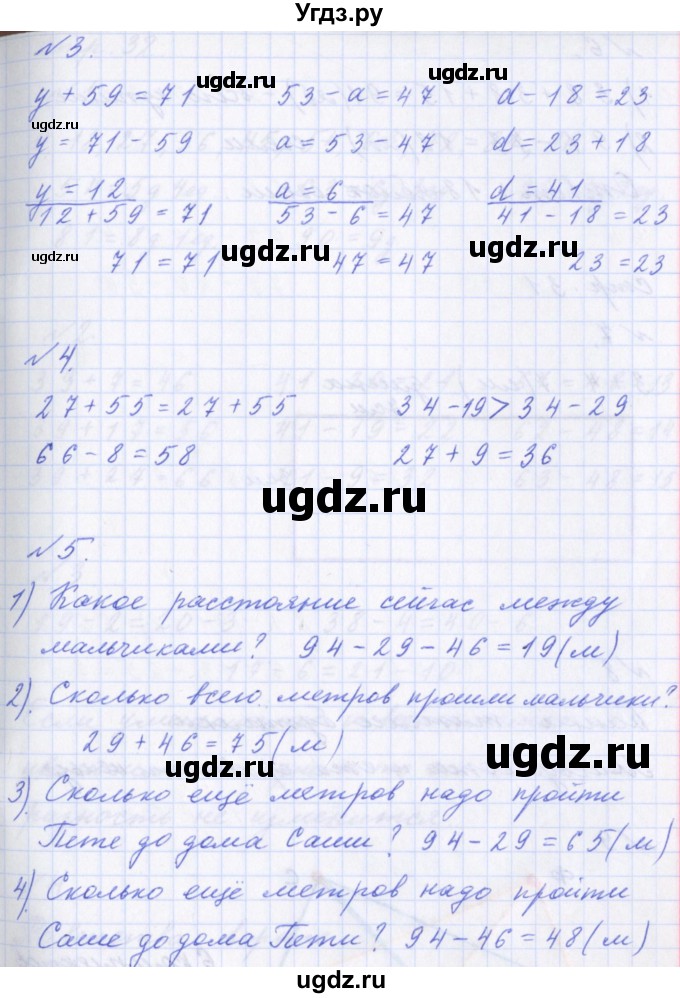 Угдз.ру
№3.
y + 59 = 71 53 - a = 47 d - 18 = 23
y = 71 - 59 a = 53 - 47 d = 23 + 18
y = 12 a = 6 d = 41
12 + 59 = 71 53 - 6 = 47 41 - 18 = 23
71 = 71 47 = 47 23 = 23
№4.
27 + 55 = 27 + 55 34 - 19 > 34 - 29
66 - 8 = 58 27 + 9 = 36
№5.
1) Какое расстояние сейчас между
мальчиками? 94 - 29 - 46 = 19 (м)
2) Сколько всего метров прошли мальчики?
29 + 46 = 75 (м)
3) Сколько ещё метров надо пройти
Пете до дома Саши? 94 - 29 = 65 (м)
4) Сколько ещё метров надо пройти
Саше до дома Пети? 94 - 46 = 48 (м)
ugdz.ru
ugdz.ru
ugdz.ru
ugdz.ru
ugdz.ru
ugdz.ru
ugdz.ru
ugdz.ru
ugdz.ru
ugdz.ru
ugdz.ru
ugdz.ru